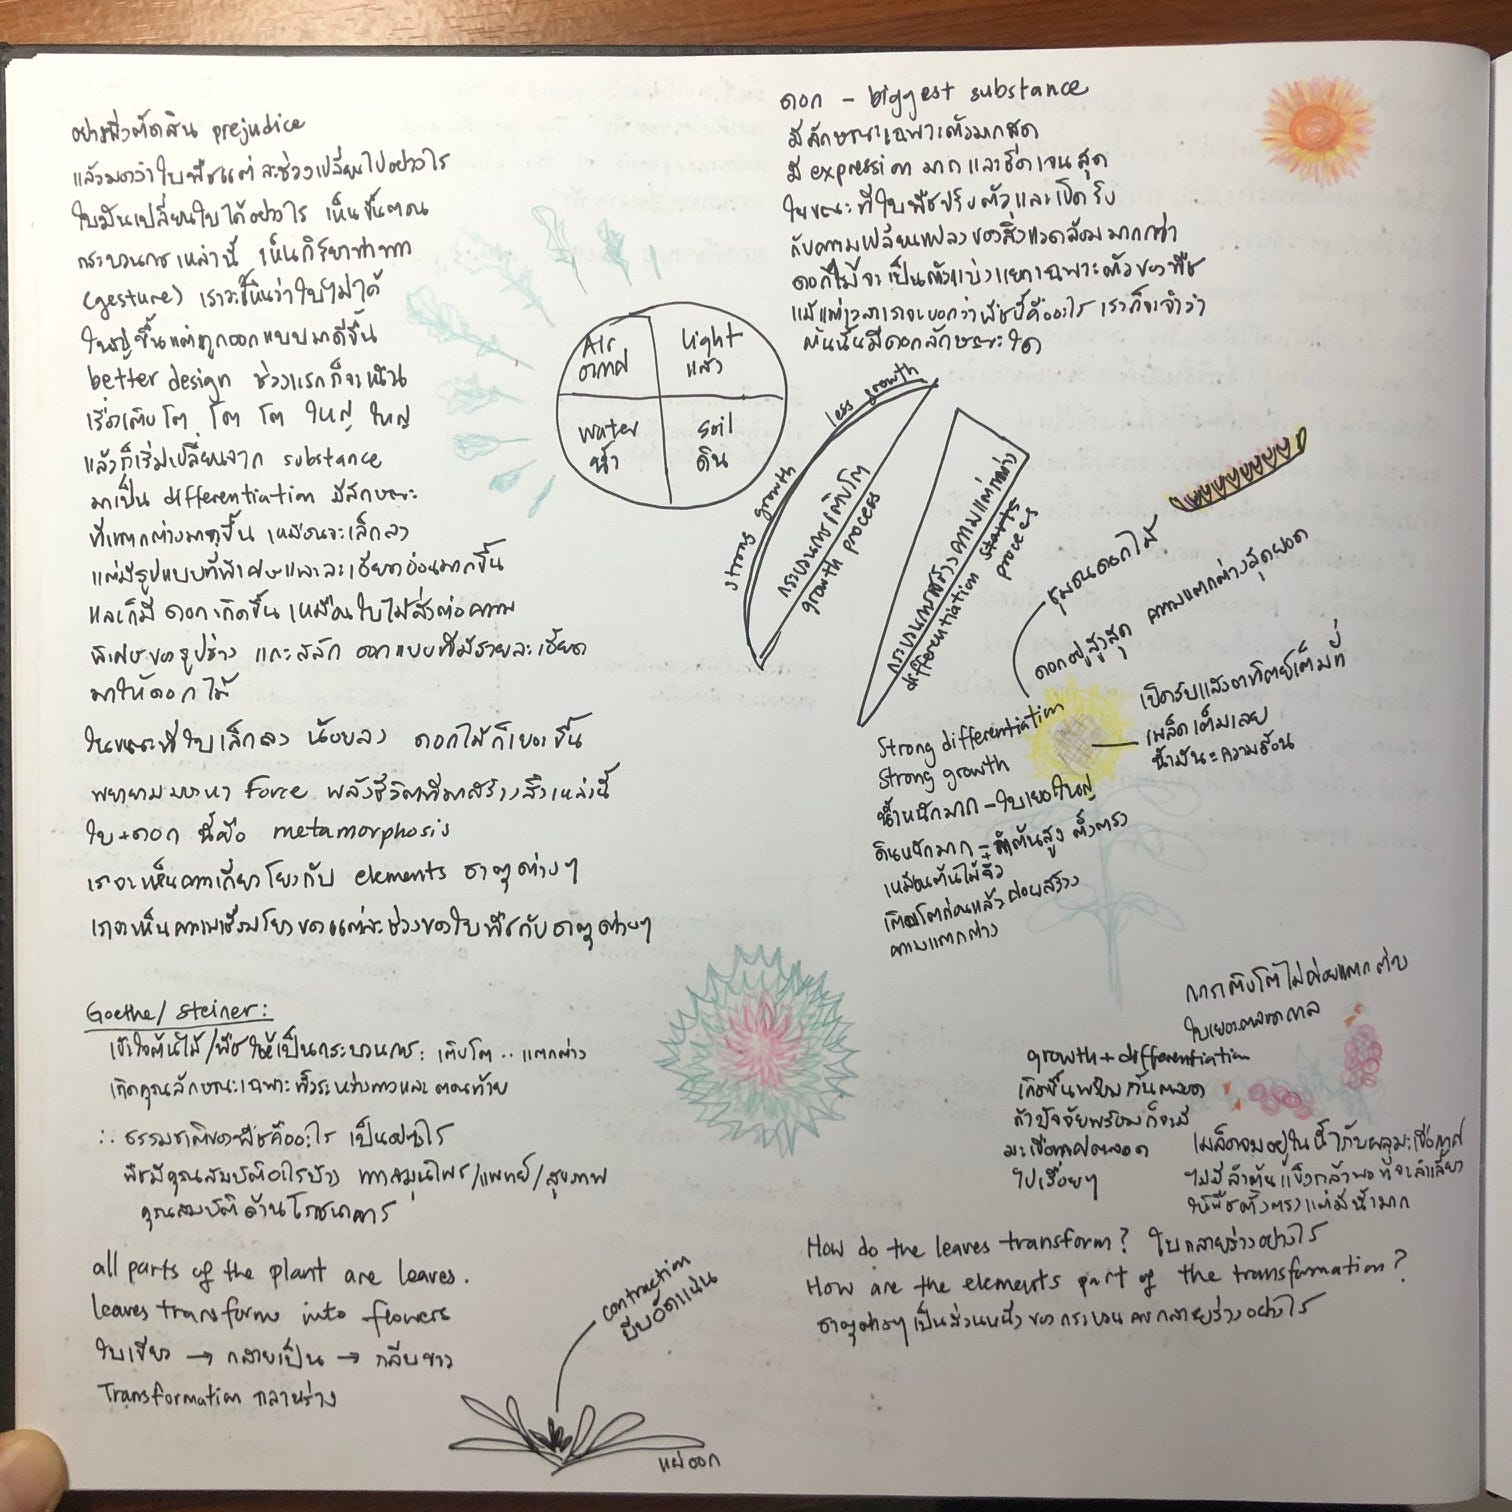 อย่าพึ่งตัดสิน prejudice
แล้วมาดูว่าใบพืชแต่ละช่วงเปลี่ยนไปอย่างไร
ใบมันเปลี่ยนใบได้อย่างไร เห็นขั้นตอน
กระบวนการเหล่านี้ เห็นกิริยาท่าทาง
(gesture) เราจะเห็นว่าใบไม่ได้
ใหญ่ขึ้นแต่ถูกออกแบบมาดีขึ้น
better design ช่วงแรกก็จะเน้น
เรื่องเติบโต โต โต ใหญ่ ใหญ่
แล้วก็เริ่มเปลี่ยนจาก substance
มาเป็น differentiation มีลักษณะ
ที่แตกต่างมากขึ้น เหมือนจะเล็กลง
แต่มีรูปแบบที่พิเศษและละเอียดอ่อนมากขึ้น
และก็มีดอกเกิดขึ้น เหมือนใบไม้ส่งต่อความ
พิเศษของรูปร่าง แกะสลัก ออกแบบที่มีรายละเอียด
มาให้ดอกไม้
ในขณะที่ใบเล็กลง น้อยลง ดอกไม้ก็เยอะขึ้น
พยายามมองหา force พลังชีวิตที่มาสร้างสิ่งเหล่านี้
ใบ→ดอก นี้คือ metamorphosis
เราจะเห็นความเกี่ยวโยงกับ elements ธาตุต่างๆ
เราจะเห็นความเชื่อมโยงของแต่ละช่วงของใบพืชกับธาตุต่างๆ
Goethe/ Steiner:
เข้าใจต้นไม้/พืชให้เป็นกระบวนการ: เติบโต.. แตกต่าง
เกิดคุณลักษณะเฉพาะทั้งระหว่างทางและตอนท้าย
∴ ธรรมชาติของพืชคืออะไร เป็นอย่างไร
พืชมีคุณสมบัติอะไรบ้าง ทางสมุนไพร/แพทย์/สุขภาพ
คุณสมบัติด้านโภชนาการ
all parts of the plant are leaves.
leaves transforms into flowers
ใบเขียว → กลายเป็น → กลีบขาว
Transformation กลายร่าง
contraction
บีบอัดแน่น
แผ่ออก
Air
อากาศ
light
แสง
water
น้ำ
soil
ดิน
ดอก - biggest substance
มีลักษณะเฉพาะตัวมากสุด
มี expression มากและชัดเจนสุด
ในขณะที่ใบพืชปรับตัวและเปิดรับ
กับความเปลี่ยนแปลงของสิ่งแวดล้อมมากกว่า
ดอกไม้จะเป็นตัวแบ่งแยกเฉพาะตัวของพืช
แม้แต่เวลาเราจะบอกว่าพืชนี้คืออะไร เราก็จะจำว่า
ต้นนั้นมีดอกลักษณะใด
strong growth
less growth
กระบวนการเติบโต
growth process
กระบวนการสร้างความแตกต่าง
differentiation starts
process
ชุมชนดอกไม้
ดอกอยู่สูงสุด ความแตกต่างสุดยอด
เปิดรับแสงอาทิตย์เต็มที่
เมล็ดเต็มเลย
น้ำมัน=ความร้อน
Strong differentiation
Strong growth
น้ำหนักมาก - ใบเยอะใหญ่
ดินหนักมาก - ลำต้นสูง ตั้งตรง
เหมือนต้นไม้จิ๋ว
เติบโตก่อนแล้วค่อยสร้าง
ความแตกต่าง
การเติบโตไม่ค่อยแตกต่าง
growth + differentiation
เกิดขึ้นพร้อมกันตลอด
ถ้าปัจจัยพร้อมก็จะมี
มะเขือเทศตลอด
ไปเรื่อยๆ
เมล็ดจมอยู่ในน้ำกับผลมะเขือเทศ
ไม่มีลำต้นแข็งกล้าพอที่จะลำเลี้ยง
ให้พืชตั้งตรงแต่มีน้ำมาก
How do the leaves transform? ใบกลายร่างอย่างไร
How are the elements part of the transformation?
ธาตุต่างๆเป็นส่วนหนึ่งของกระบวนการกลายร่างอย่างไร